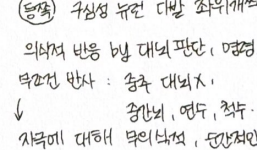 (등쪽) 구심성 뉴런 다발 좌우개
의식적 반응 by 대뇌 판단, 명령
무조건 반사 : 중추 대뇌X,
↓ 중간뇌, 연수, 척수.
자극에 대해 무의식적, 순간적인